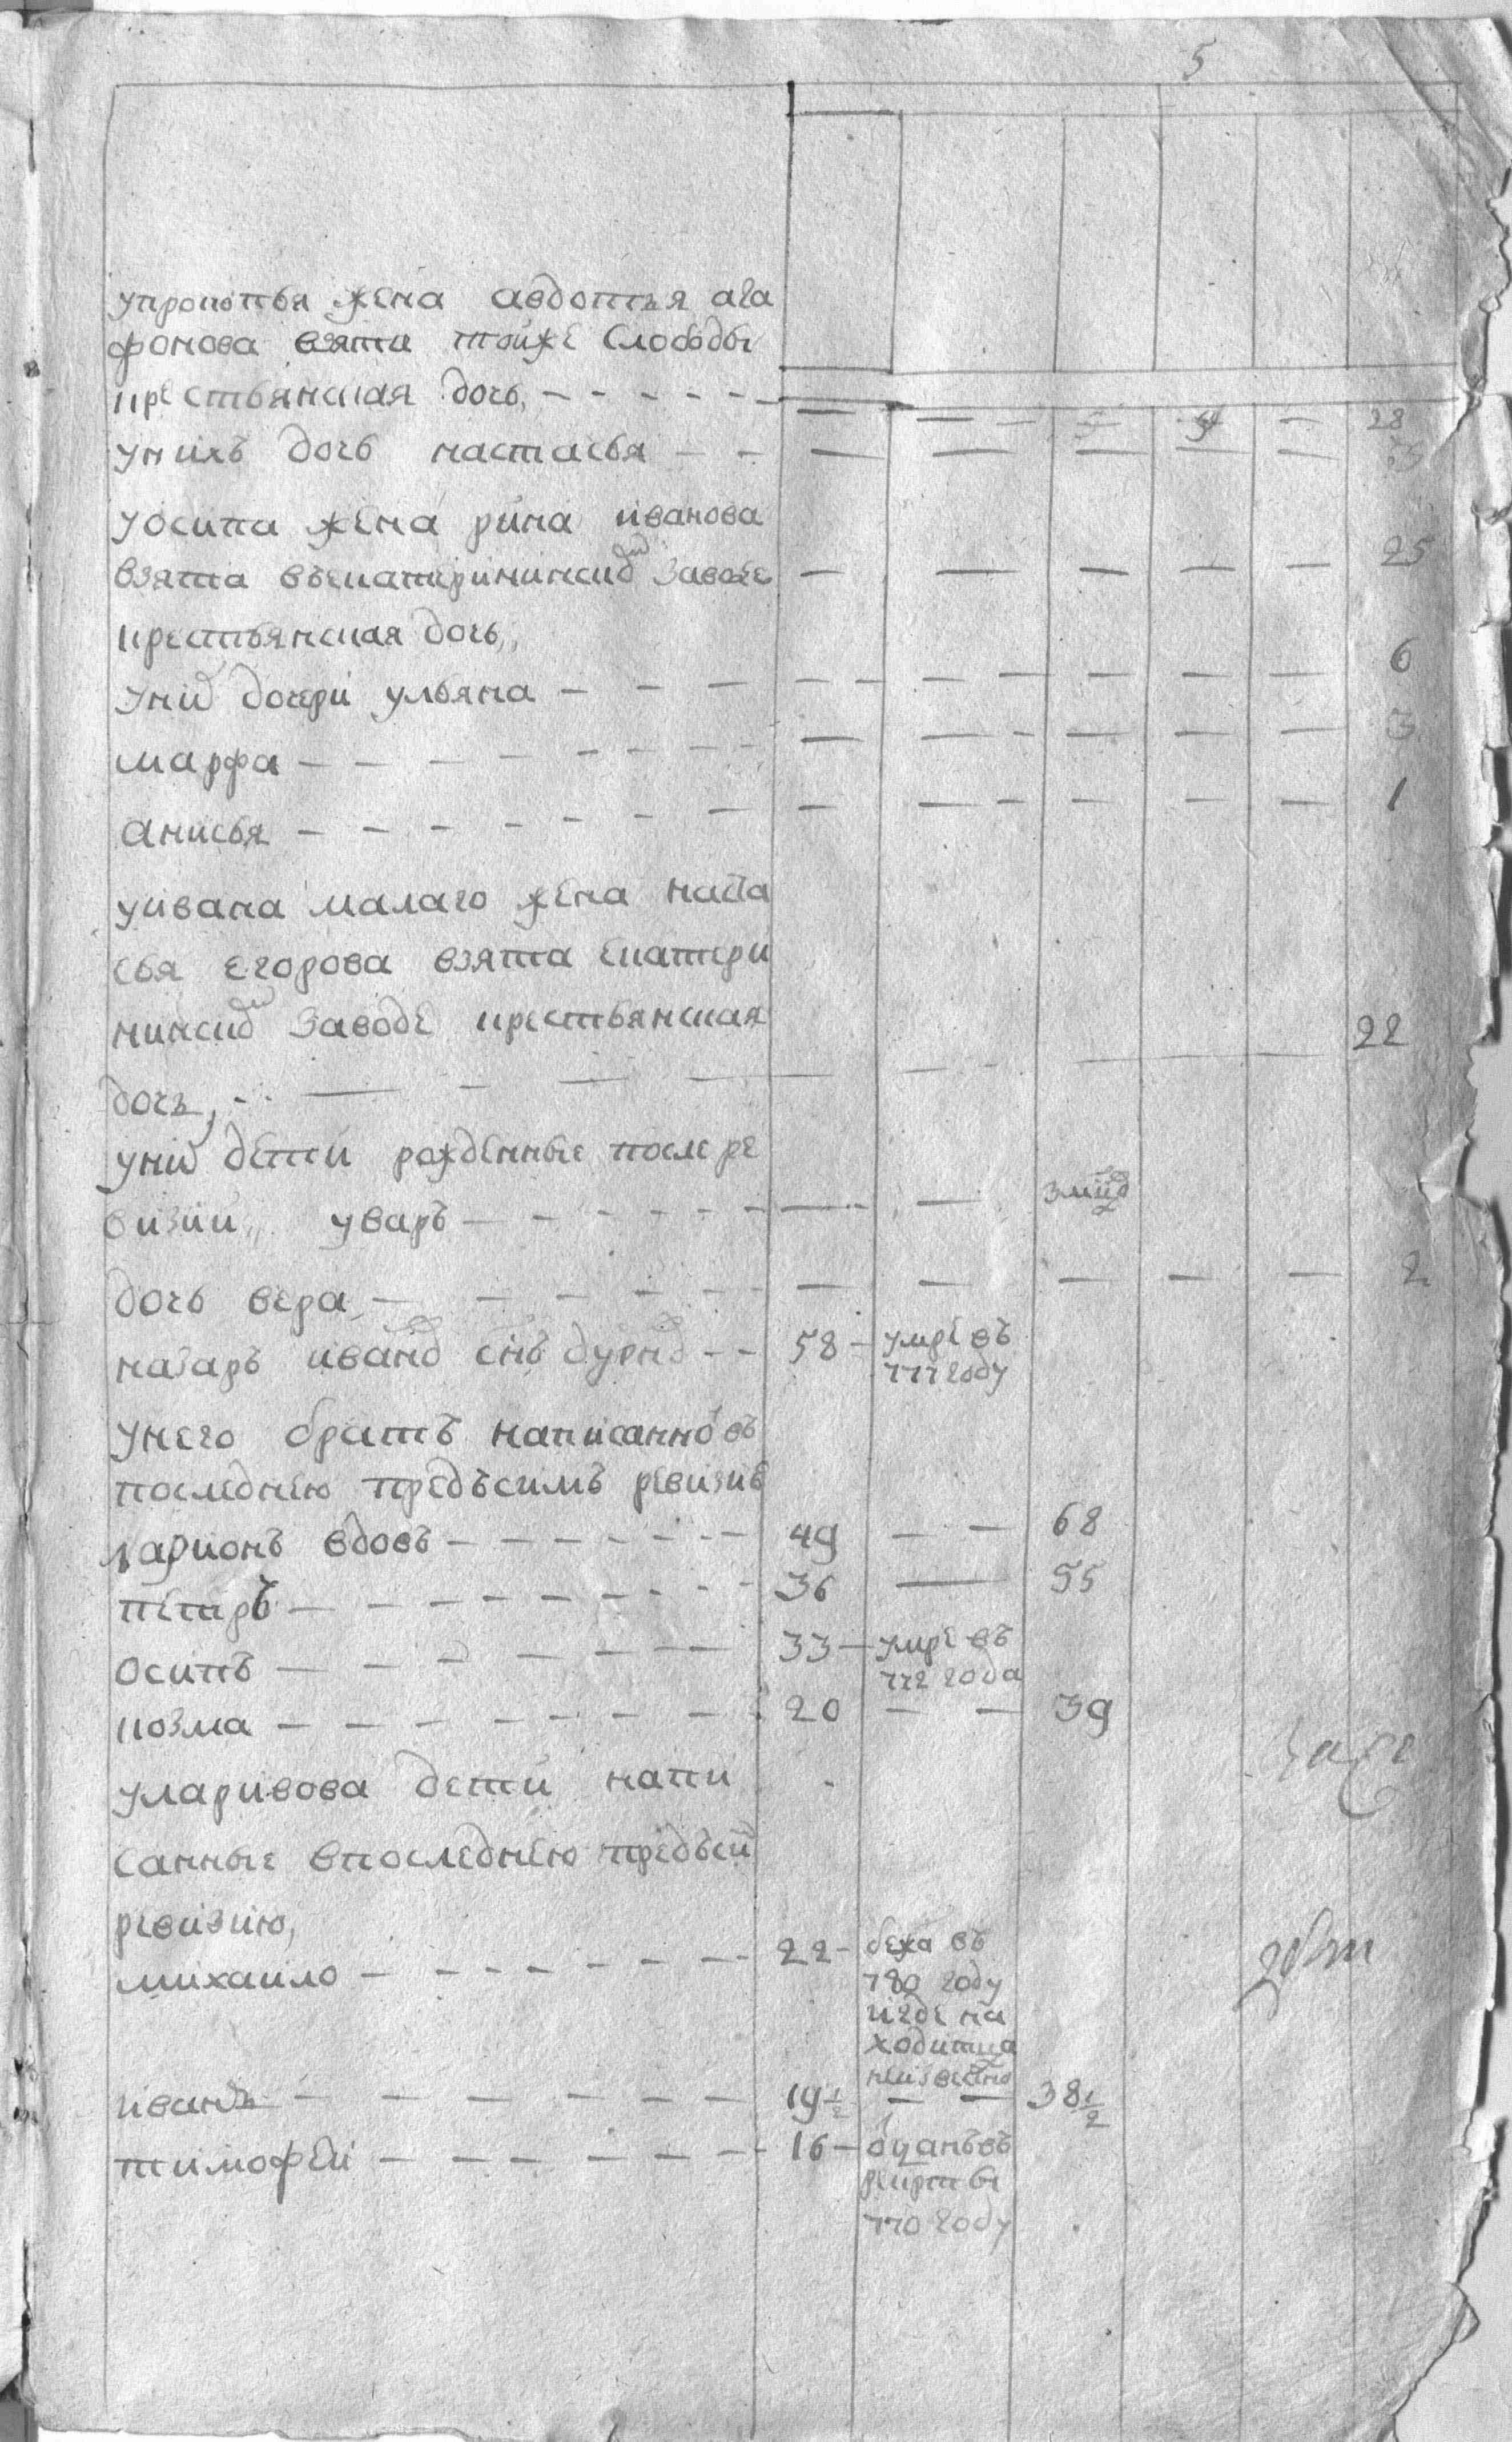 5
упрокопья жена авдотья ага
фонова взята тойже слободы
крестьянская дочь, — — — — — — 28
унихъ дочь настасья — — — — — — —
уосипа жена рина иванова 25
взята въекатерининской заводе — — — — —
крестьянская дочь,,
уних дочери ульяна — — — — — — — — 6
марфа — — — — — — — — — 3
анисья — — — — — — — — — 1
уивана малаго жена наста
сья егорова взята екатери
нинской заводе крестьянская 22
дочь, — — — — — — —
уних дети рожденные после ре
визии,, уваръ — — — — — — — 3 мцов
дочь вера — — — — — — — — — 2
назаръ иванов снъ дурнов — — 58 — умре въ
777 году
унего братъ написанной въ
последнею предъсимъ ревизие
ларионъ вдовъ — — — — — — 49 — — 68
петръ — — — — — — — 36 — 55
осипъ — — — — — — 33 — умре въ
772 года
козма — — — — — — — 20 — — 39
уларивона дети напи
санные впоследнею предъсей
ревизию,
михаило — — — — — — — 22 — бежа въ
780 году
игде на
ходитца
неизвестно
иванъ — — — — — — 19 1/2 — — 38 1/2
тимофей — — — — — — — 16 — оцанъ въ
рекруты
770 году